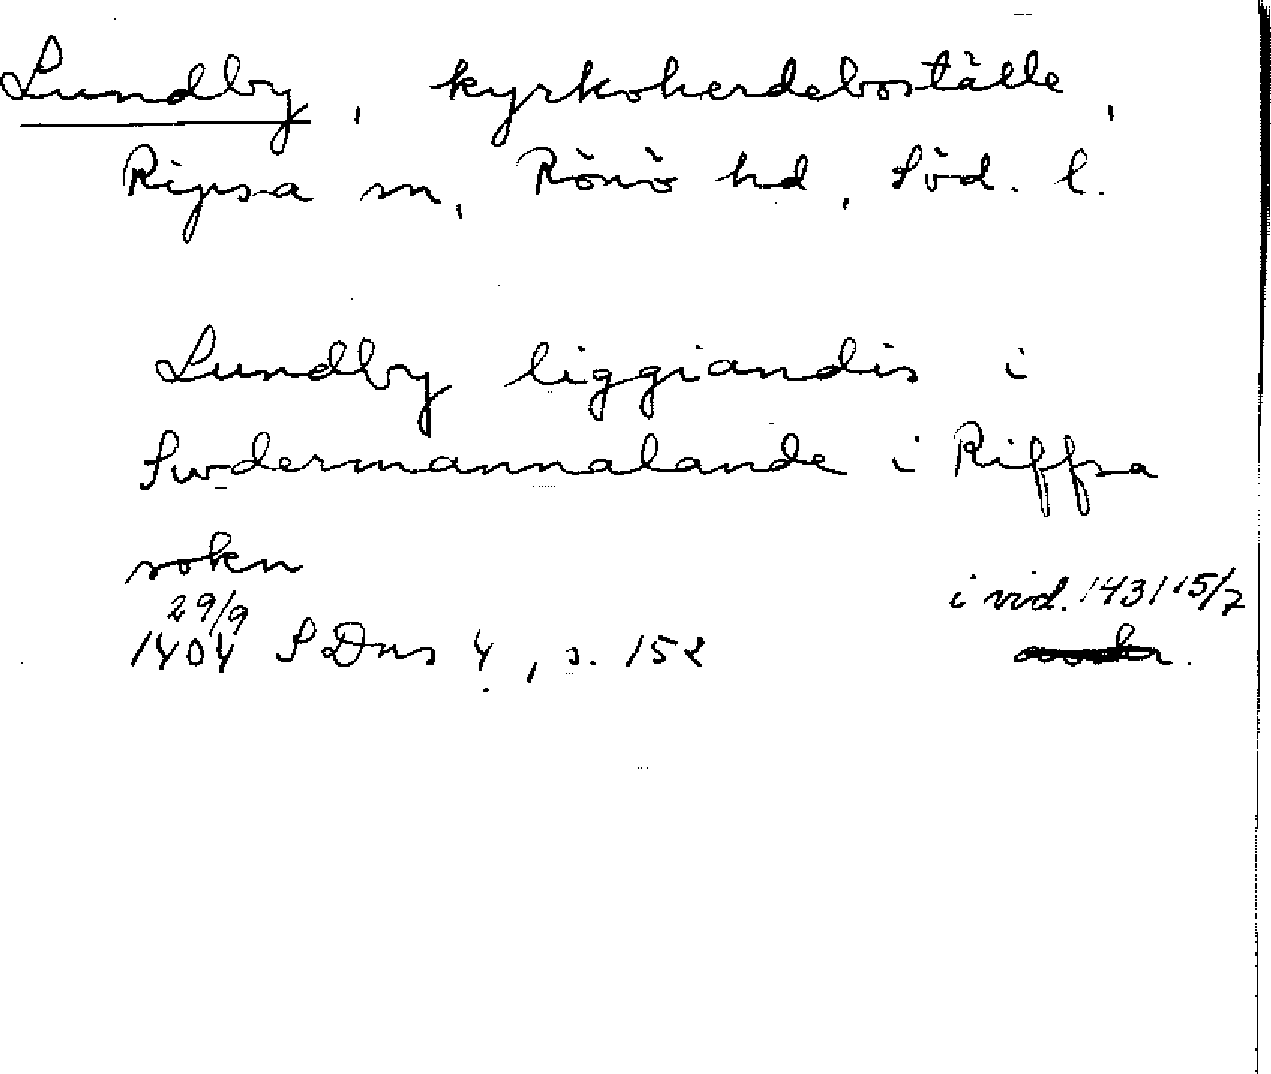 Lundby, kyrkoherdeboställe,
Ripsa sn, Rönö hd, Söd. l.
Lundby liggiandis i
Swdermannalande i Riffsa
sokn
29/9 i vid. 1431 15/7
1404 SDns 4, s. 152